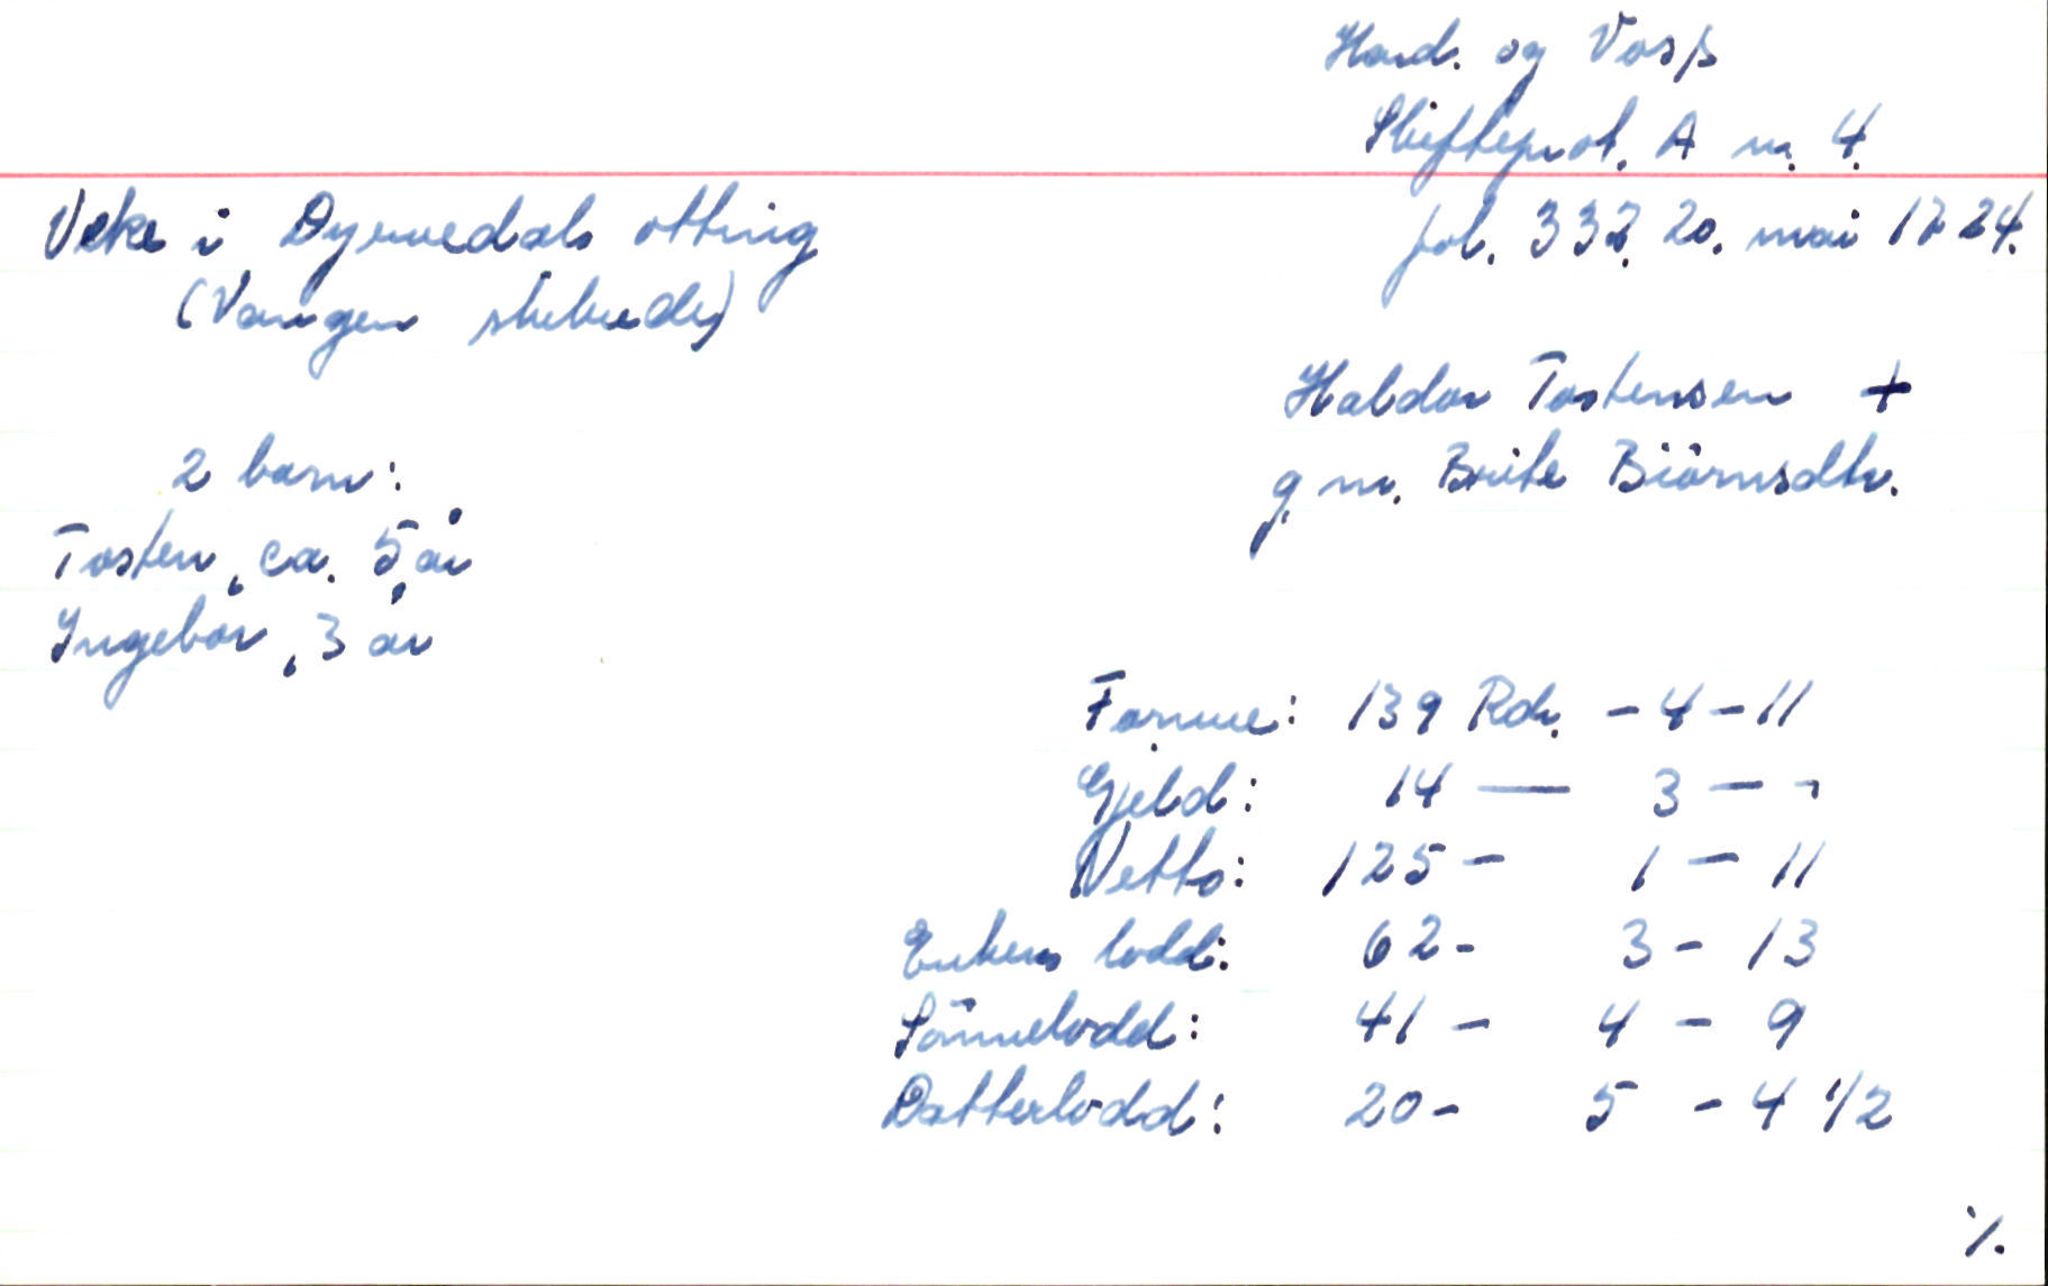 Hard. og Voss
Skifteprot. A nr. 4.
Veke i Dyrvedals otting
fol. 332. 20. mai 1724.
(Vangen skibrede)
Haldor Tostensen +
g. m. Brite Biörnsdtr.
2 barn:
Tosten, ca. 5 år
Ingebor, 3 år
Formue: 139 Rdr. - 4 - 11
Gjeld: 14 — 3 - -
Netto: 125 - 1 - 11
Enkens lodd: 62 - 3 - 13
Sönnelodd: 41 - 4 - 9
Datterlodd: 20 - 5 - 4 1/2
./.